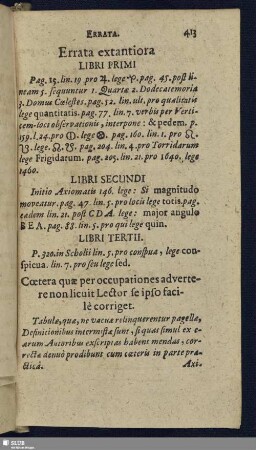 ERRATA. 413
Errata extantiora
LIBRI PRIMI
Pag. 15. lin. 19 pro ♃. lege ♈. pag. 45. post li-
neam 5. sequuntur 1. Quartæ 2. Dodecatemoria
3. Domus Cœlestes. pag. 52. lin. ult. pro qualitatis
lege quantitatis. pag. 77. lin. 7. verbis per Verti-
cem loci observationis, interpone: & pedem. p.
159. l. 24. pro ☽. lege ☉. pag. 160. lin. 1. pro ☊
☋. lege. ☊. ☋. pag. 204. lin. 4. pro Torridarum
lege Frigidarum. pag. 205. lin. 21. pro 1640. lege
1460.
LIBRI SECUNDI
Initio Axiomatis 146. lege: Si magnitudo
moveatur. pag. 47. lin. 5. pro locis lege totis. pag.
eadem lin. 21. post C D A. lege: major angulo
B E A. pag. 88. lin. 5. pro qui lege quin.
LIBRI TERTII.
P. 320. in Scholii lin. 5. pro conspua, lege con-
spicua. lin. 7. pro seu lege sed.
Cœtera quæ per occupationes adverte-
re non licuit Lector se ipso faci-
lè corriget.
Tabulæ, quæ, ne vacuæ relinquerentur pagellæ,
Definitionibus intermistæ sunt, si quas simul ex e-
arum Autoribus exscriptas habent mendas, cor-
rectæ denuò prodibunt cum cæteris in parte pra-
cticâ. Axi-
SLUB